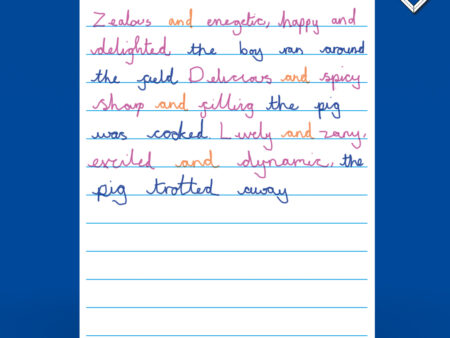 Zealous and energetic, happy and
delighted the boy ran around
the field Delicious and spicy
sharp and filling the pig
was cooked. Lively and zany,
excited and dynamic, the
pig trotted away